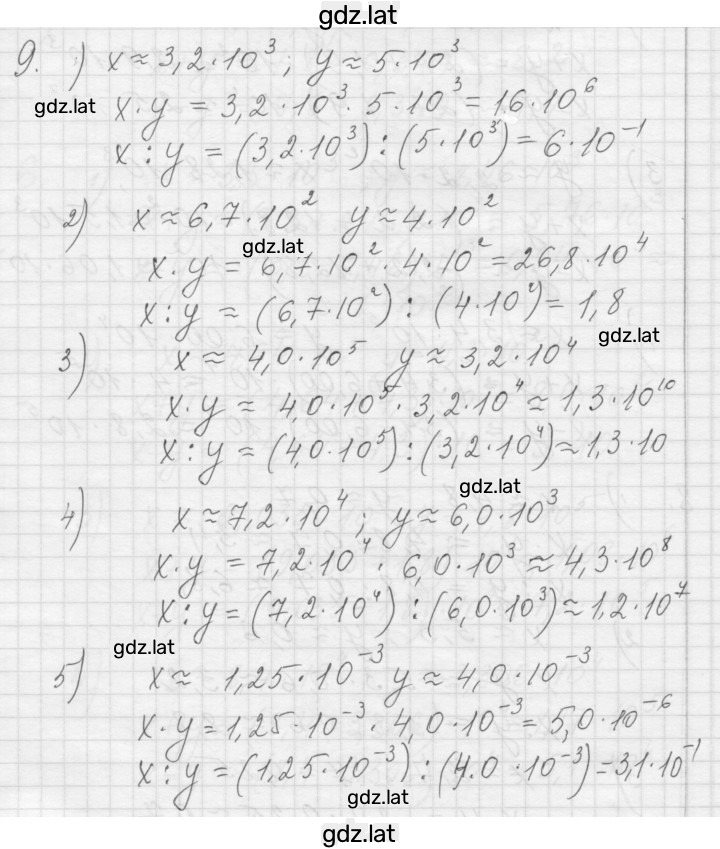 gdz.lat
9. 1) x ≈ 3,2·10³; y ≈ 5·10³
gdz.lat
x·y = 3,2·10³·5·10³ = 16·10⁶
x:y = (3,2·10³):(5·10³) = 6·10⁻¹
2) x ≈ 6,7·10² y ≈ 4·10²
gdz.lat
x·y = 6,7·10²·4·10² = 26,8·10⁴
x:y ≈ (6,7·10²):(4·10²) = 1,8
gdz.lat
3) x ≈ 4,0·10⁵ y ≈ 3,2·10⁴
x·y ≈ 4,0·10⁵·3,2·10⁴ ≈ 1,3·10¹⁰
x:y = (4,0·10⁵):(3,2·10⁴) ≈ 1,3·10
gdz.lat
4) x ≈ 7,2·10⁴; y ≈ 6,0·10³
x·y = 7,2·10⁴·6,0·10³ ≈ 4,3·10⁸
x:y = (7,2·10⁴):(6,0·10³) ≈ 1,2·10⁷
gdz.lat
5) x ≈ 1,25·10⁻³ y ≈ 4,0·10⁻³
x·y = 1,25·10⁻³·4,0·10⁻³ = 5,0·10⁻⁶
x:y = (1,25·10⁻³):(4,0·10⁻³) = 3,1·10⁻¹
gdz.lat
gdz.lat